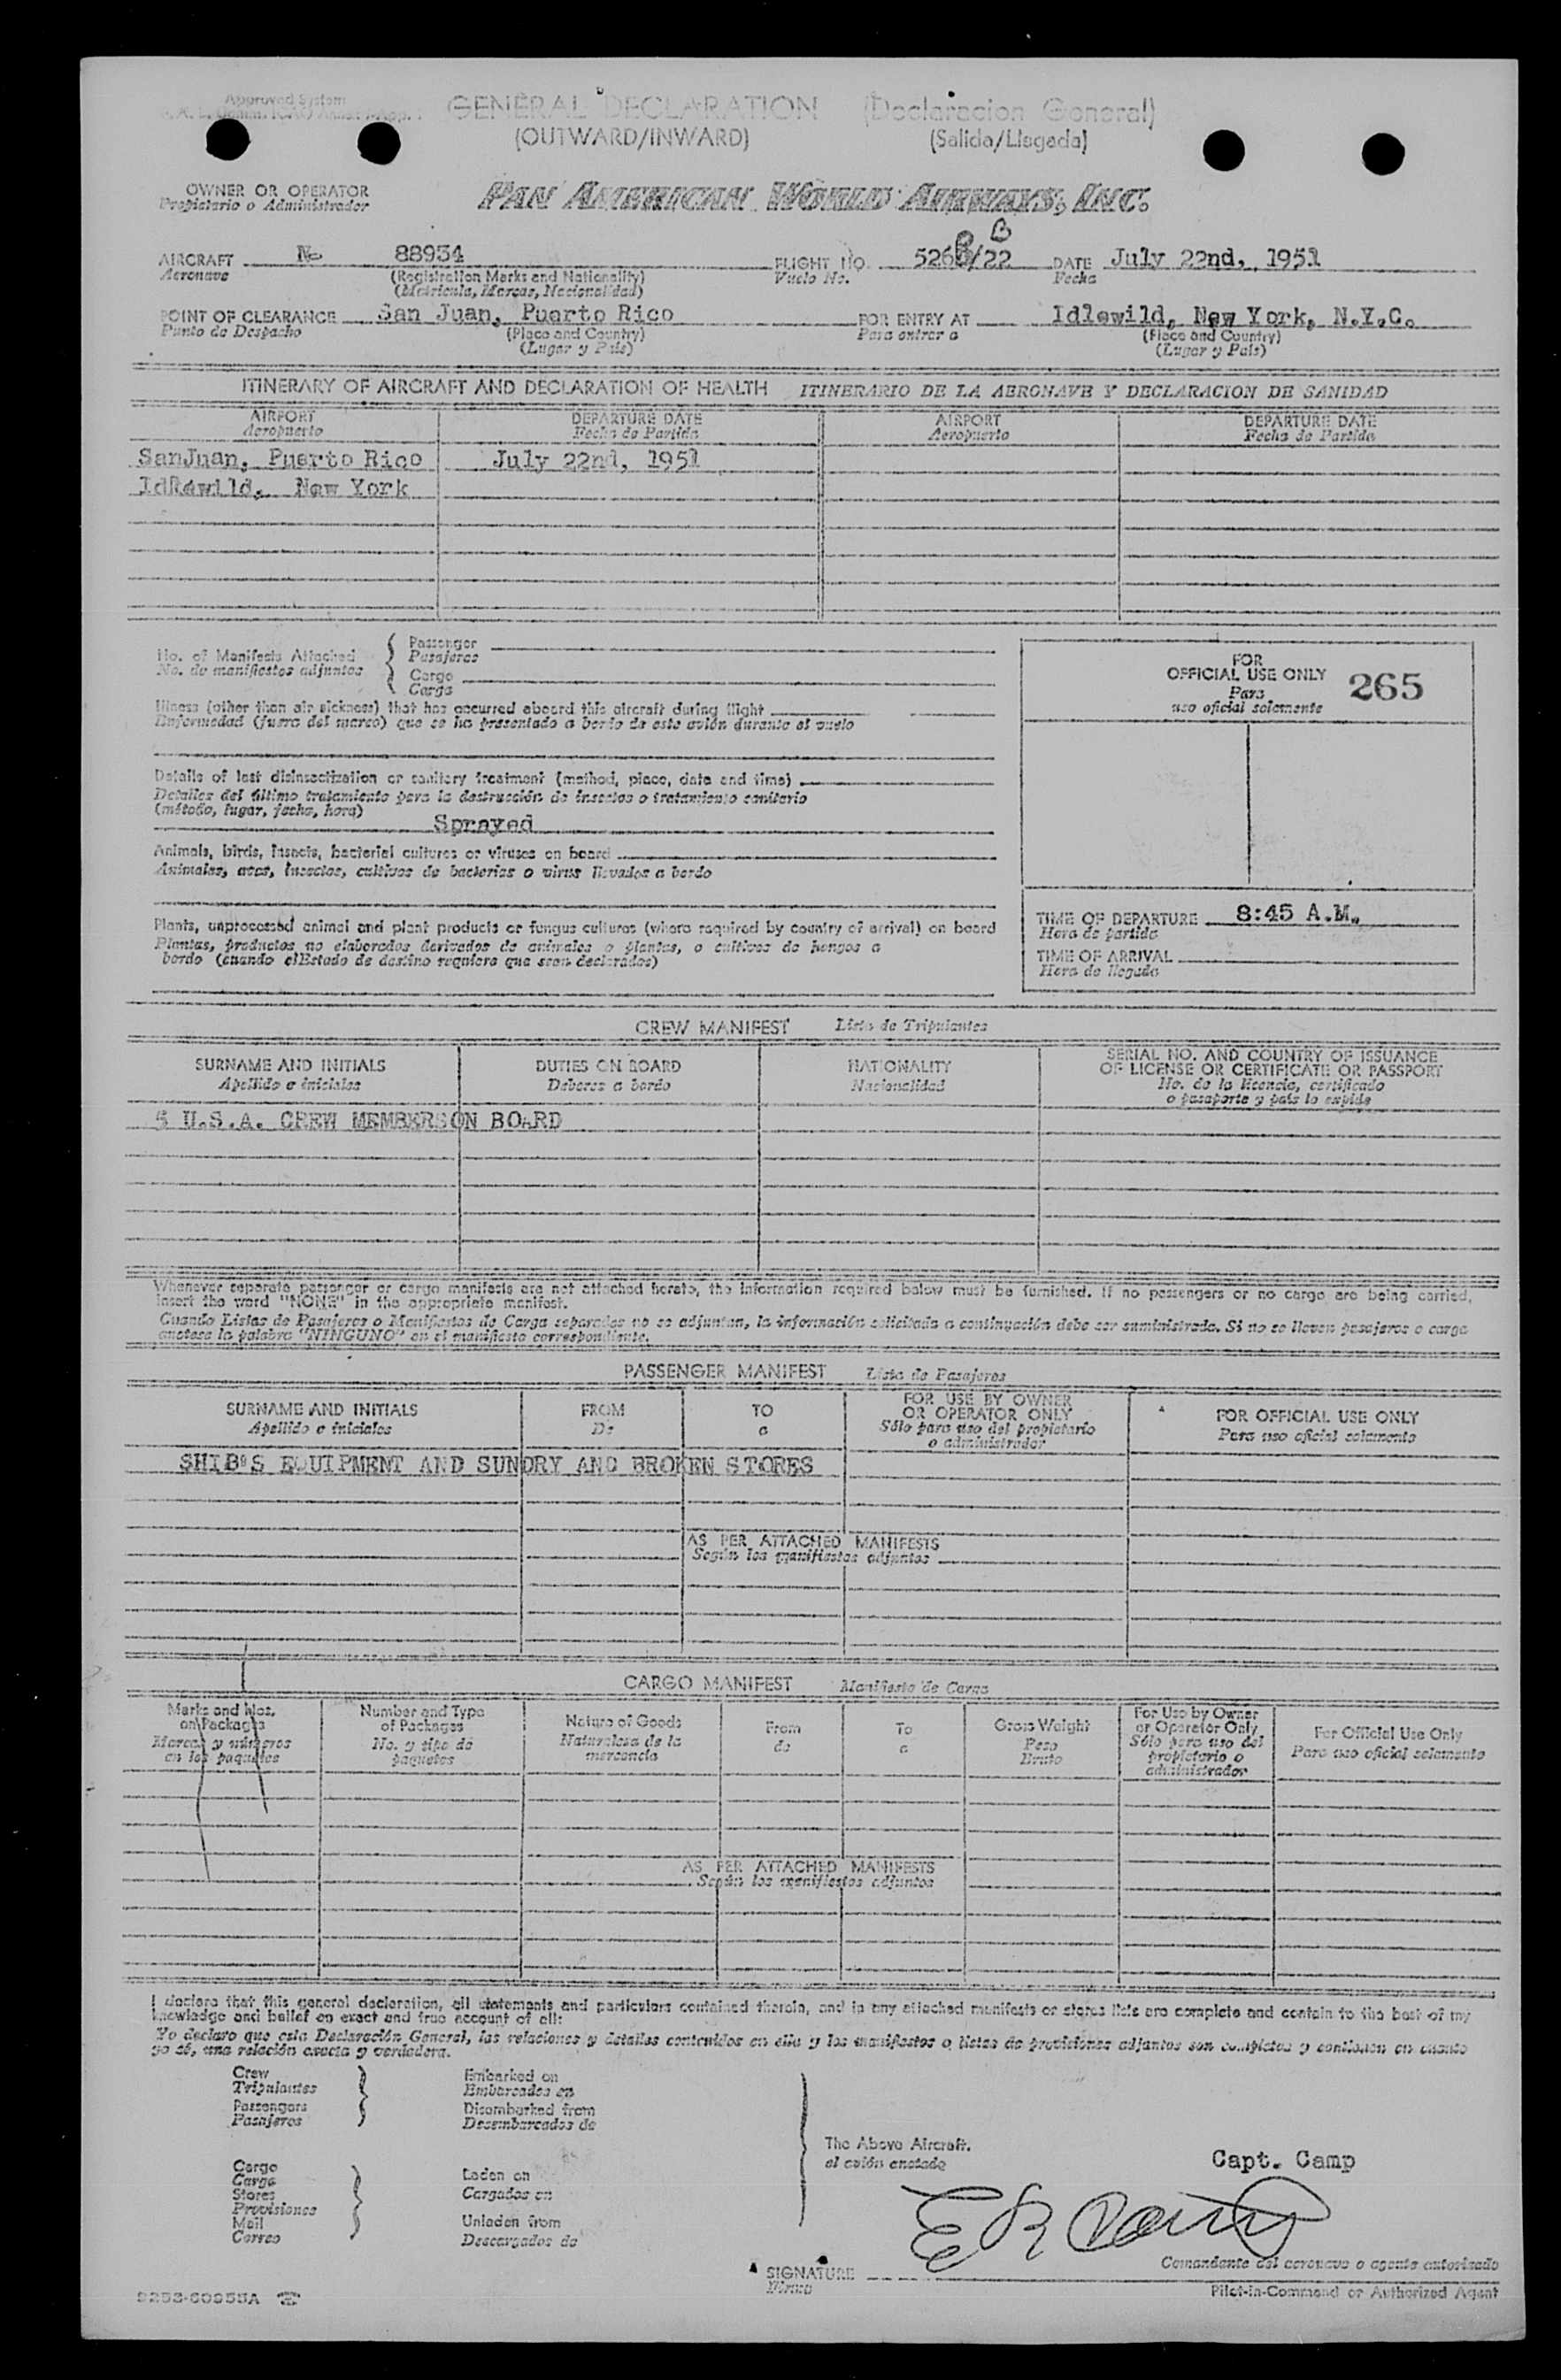 Approved System
GENERAL DECLARATION (Declaracion General)
(OUTWARD/INWARD) (Salida/Llegada)
OWNER OR OPERATOR
Propietario o Administrador
PAN AMERICAN WORLD AIRWAYS, INC.
B
AIRCRAFT N- 88934 FLIGHT NO. 526B/22 DATE July 22nd, 1951
Aeronave (Registration Marks and Nationality) Vuelo No. Fecha
(Matricula, Marcas, Nacionalidad)
POINT OF CLEARANCE San Juan, Puerto Rico FOR ENTRY AT Idlewild, New York, N.Y.C.
Punto de Despacho (Place and Country) Para entrar a (Place and Country)
(Lugar y País) (Lugar y País)
ITINERARY OF AIRCRAFT AND DECLARATION OF HEALTH ITINERARIO DE LA AERONAVE Y DECLARACION DE SANIDAD
AIRPORT DEPARTURE DATE AIRPORT DEPARTURE DATE
Aeropuerto Fecha de Partida Aeropuerto Fecha de Partida
SanJuan, Puerto Rico July 22nd, 1951
Idlewild, New York
No. of Manifests Attached
No. de manifiestos adjuntos
Passenger
Pasajeros
Cargo
Carga
Illness (other than air sickness) that has occurred aboard this aircraft during flight
Enfermedad (fuera del mareo) que se ha presentado a bordo de este avión durante el vuelo
Details of last disinsectization or sanitary treatment (method, place, date and time)
Detalles del último tratamiento para la destrucción de insectos o tratamiento sanitario
(método, lugar, fecha, hora)
Sprayed
Animals, birds, insects, bacterial cultures or viruses on board
Animales, aves, insectos, cultivos de bacterias o virus llevados a bordo
Plants, unprocessed animal and plant products or fungus cultures (where required by country of arrival) on board
Plantas, productos no elaborados derivados de animales o plantas, o cultivos de hongos a
bordo (cuando el Estado de destino requiera que sean declarados)
FOR
OFFICIAL USE ONLY 265
Para
uso oficial solamente
TIME OF DEPARTURE 8:45 A.M.
Hora de partida
TIME OF ARRIVAL
Hora de llegada
CREW MANIFEST Lista de Tripulantes
SURNAME AND INITIALS DUTIES ON BOARD NATIONALITY SERIAL NO. AND COUNTRY OF ISSUANCE
OF LICENSE OR CERTIFICATE OR PASSPORT
Apellido e iniciales Deberes a bordo Nacionalidad No. de la licencia, certificado
o pasaporte y país lo expide
5 U.S.A. CREW MEMBERS ON BOARD
Whenever separate passenger or cargo manifests are not attached hereto, the information required below must be furnished. If no passengers or no cargo are being carried,
insert the word "NONE" in the appropriate manifest.
Cuando Listas de Pasajeros o Manifiestos de Carga separados no se adjuntan, la información solicitada a continuación debe ser suministrada. Si no se llevan pasajeros o carga
anotese la palabra "NINGUNO" en el manifiesto correspondiente.
PASSENGER MANIFEST Lista de Pasajeros
SURNAME AND INITIALS FROM TO FOR USE BY OWNER
OR OPERATOR ONLY FOR OFFICIAL USE ONLY
Apellido e iniciales De a Sólo para uso del propietario
o administrador Para uso oficial solamente
SHIB'S EQUIPMENT AND SUNDRY AND BROKEN STORES
AS PER ATTACHED MANIFESTS
Según los manifiestos adjuntos
CARGO MANIFEST Manifiesto de Carga
Marks and Nos.
on Packages
Marcas y números
en los paquetes
Number and Type
of Packages
No. y tipo de
paquetes
Nature of Goods
Naturaleza de la
mercancía
From
de
To
a
Gross Weight
Peso
Bruto
For Use by Owner
or Operator Only
Sólo para uso del
propietario o
administrador
For Official Use Only
Para uso oficial solamente
AS PER ATTACHED MANIFESTS
Según los manifiestos adjuntos
I declare that this general declaration, all statements and particulars contained therein, and in any attached manifests or stores lists are complete and contain to the best of my
knowledge and belief an exact and true account of all:
Yo declaro que esta Declaración General, las relaciones y detalles contenidos en ella y los manifiestos o listas de provisiones adjuntos son completos y contienen en cuanto
yo sé, una relación exacta y verdadera.
Crew
Tripulantes
Passengers
Pasajeros
Embarked on
Embarcados en
Disembarked from
Desembarcados de
Cargo
Carga
Stores
Provisiones
Mail
Correo
Laden on
Cargados en
Unladen from
Descargados de
The Above Aircraft.
el avión anotado
Capt. Camp
SIGNATURE
Firma
Comandante del aeronave o agente autorizado
Pilot-in-Command or Authorized Agent